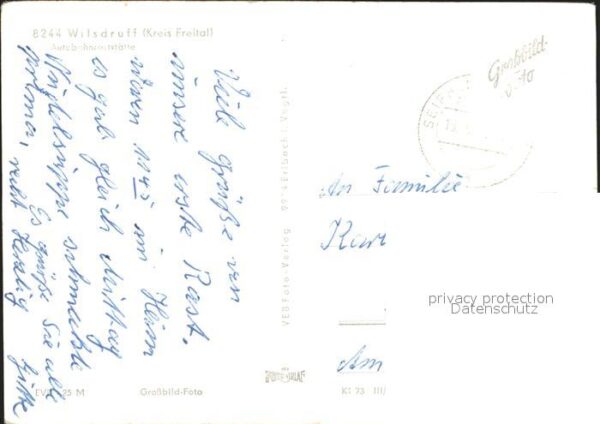 8244 Wilsdruff (Kreis Freital)
Autobahnraststätte
Viel Grüße von
unsere erste Rast.
waren 11 45 im Heim
es gab gleich Mittag
Nudelsuppe schmeckte
prima,
Es grüße Sie alle
recht Herzlig
VEB Foto-Verlag 9934 Erlbach i. Vogtl.
EVP 25 M
Großbild-Foto
Großbild-
Foto
SEIF
An Familie
Kar
privacy protection
Datenschutz
Am
K 73 III/